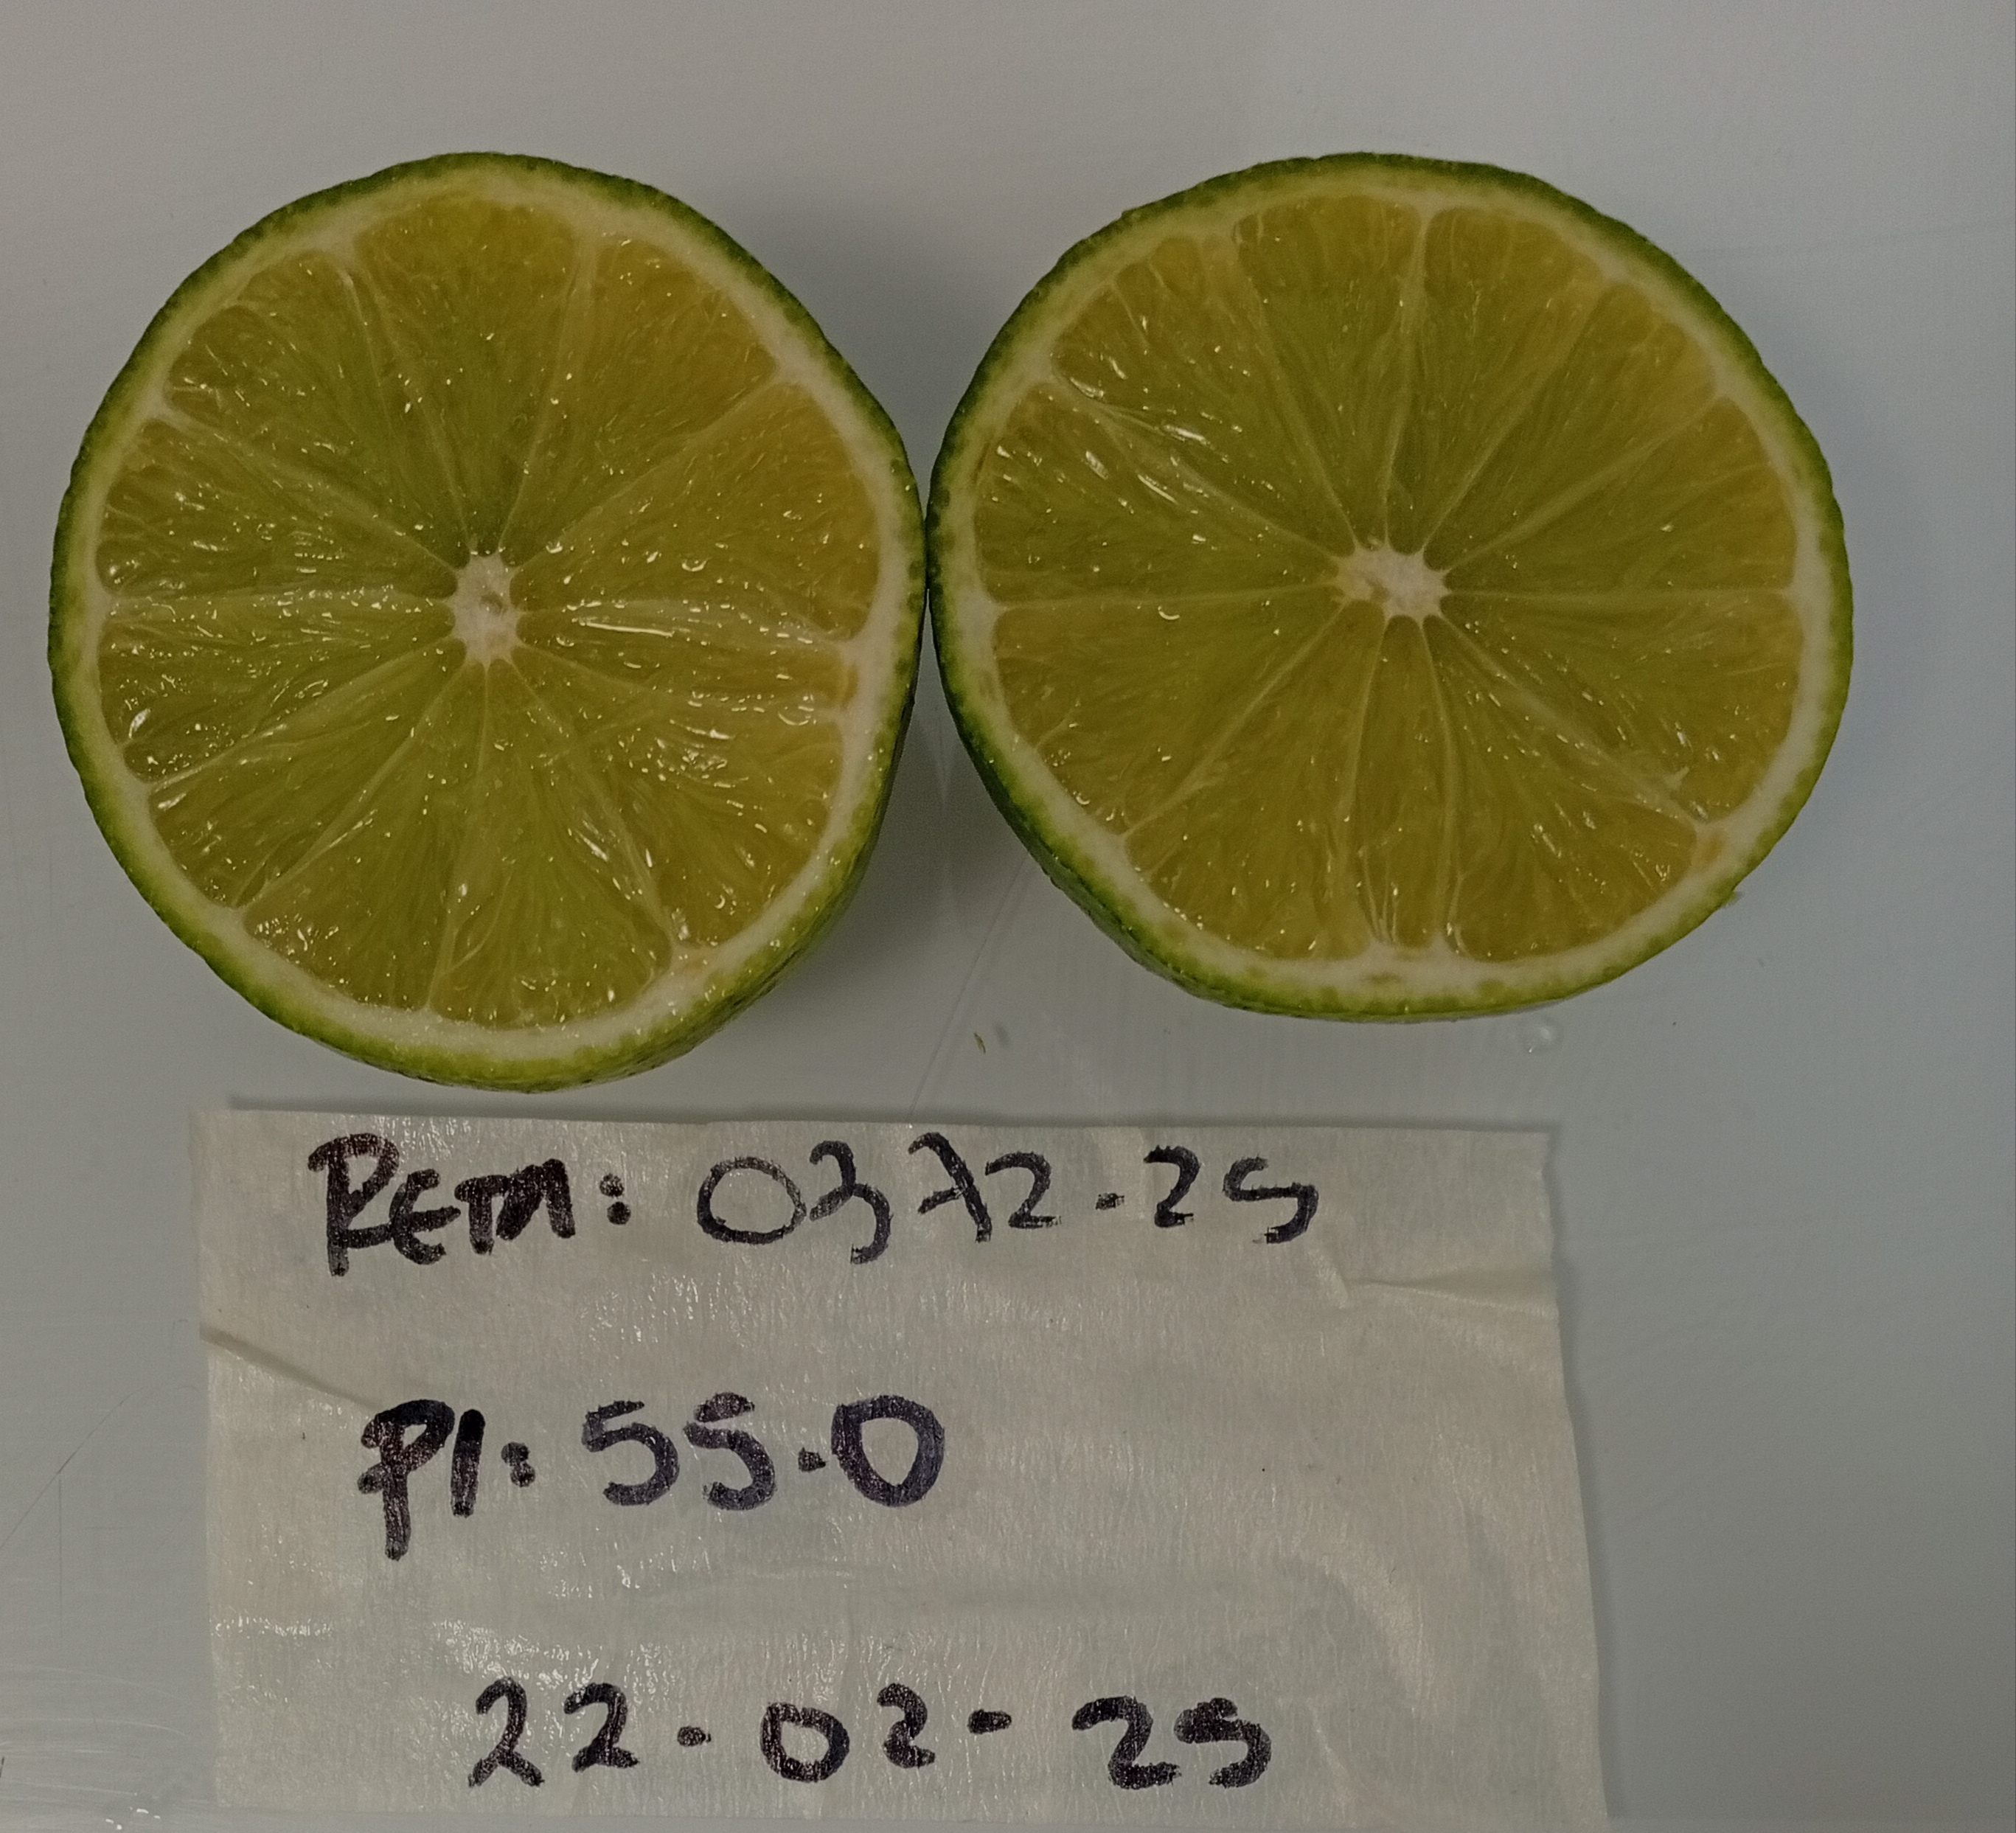 RETA: 0372-25
PI: 55.0
22-02-25